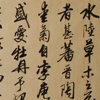 水陸草木之
者甚蕃晉陶
菊自李唐
盛愛牡丹予